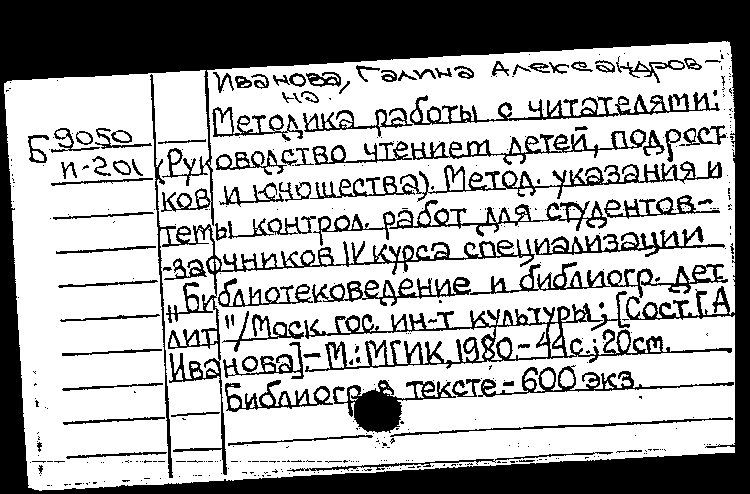 Иванова, Галина Александров-
на.
Методика работы с читателями:
Б 9050
П-201
(Руководство чтением детей, подрост
ков и юношества). Метод. указания и
темы контрол. работ для студентов-
-заочников IV курса специализации
„Библиотековедение и библиогр. дет.
лит."/Моск. гос. ин-т культуры; [Сост. Г. А.
Иванова].- М.: МГИК, 1980.- 44 с.; 20 см.
Библиогр. в тексте.- 600 экз.